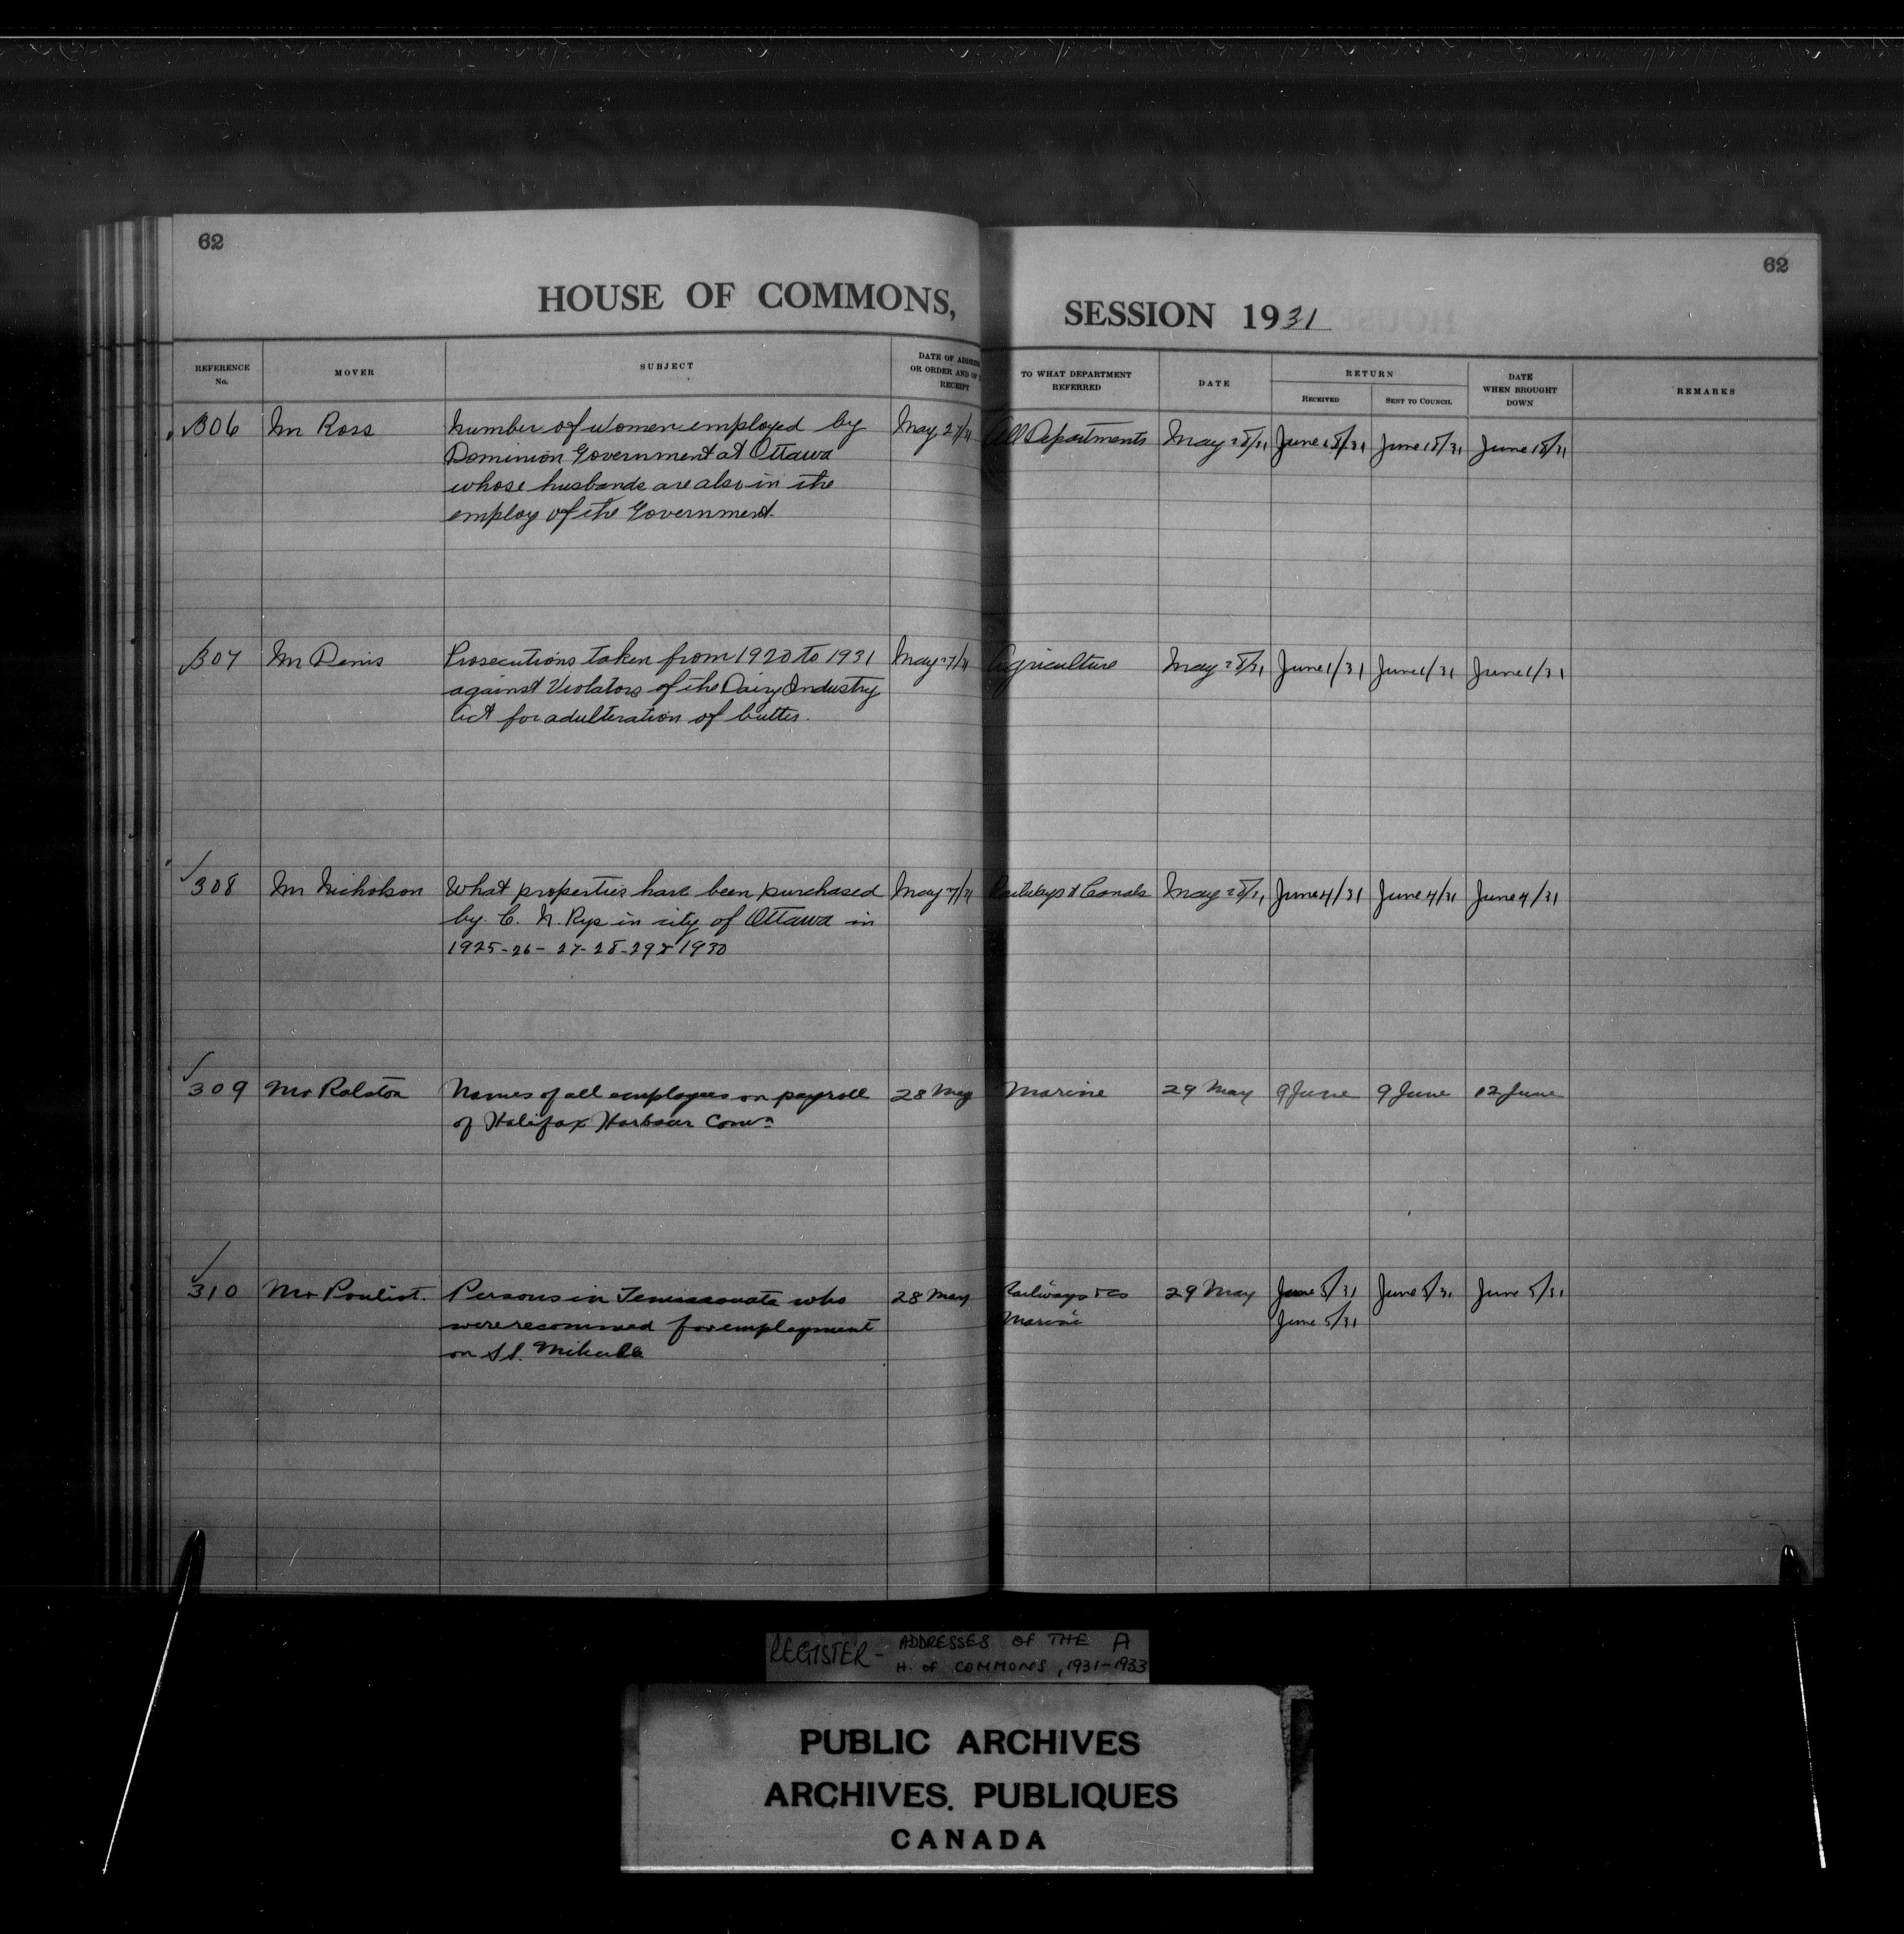 62
62
HOUSE OF COMMONS, SESSION 1931
REFERENCE No.
MOVER
SUBJECT
DATE OF ADDRESS OR ORDER AND OF RECEIPT
TO WHAT DEPARTMENT REFERRED
DATE
RETURN
RECEIVED
SENT TO COUNCIL
DATE WHEN BROUGHT DOWN
REMARKS
306 Mr Ross Number of women employed by May 27/31 All Departments May 28/31 June 18/31 June 18/31 June 18/31
Dominion Government at Ottawa
whose husbands are also in the
employ of the Government
307 Mr Denis Prosecutions taken from 1920 to 1931 May 27/31 Agriculture May 28/31 June 1/31 June 1/31 June 1/31
against Violators of the Dairy Industry
Act for adulteration of butter.
308 Mr Nicholson What properties have been purchased May 27/31 Railways & Canals May 28/31 June 4/31 June 4/31 June 4/31
by C. N. Rys in city of Ottawa in
1925-26-27-28-29 & 1930
309 Mr Ralston Names of all employees on payroll 28 May Marine 29 May 9 June 9 June 12 June
of Halifax Harbour Comn
310 Mr Pouliot. Persons in Temiscouata who 28 May Railways &cs 29 May June 5/31 June 5/31 June 5/31
were recommed for employment Marine June 5/31
on SS. Mikula
REGISTER - ADDRESSES OF THE A
H. of COMMONS, 1931-1933
PUBLIC ARCHIVES
ARCHIVES. PUBLIQUES
CANADA